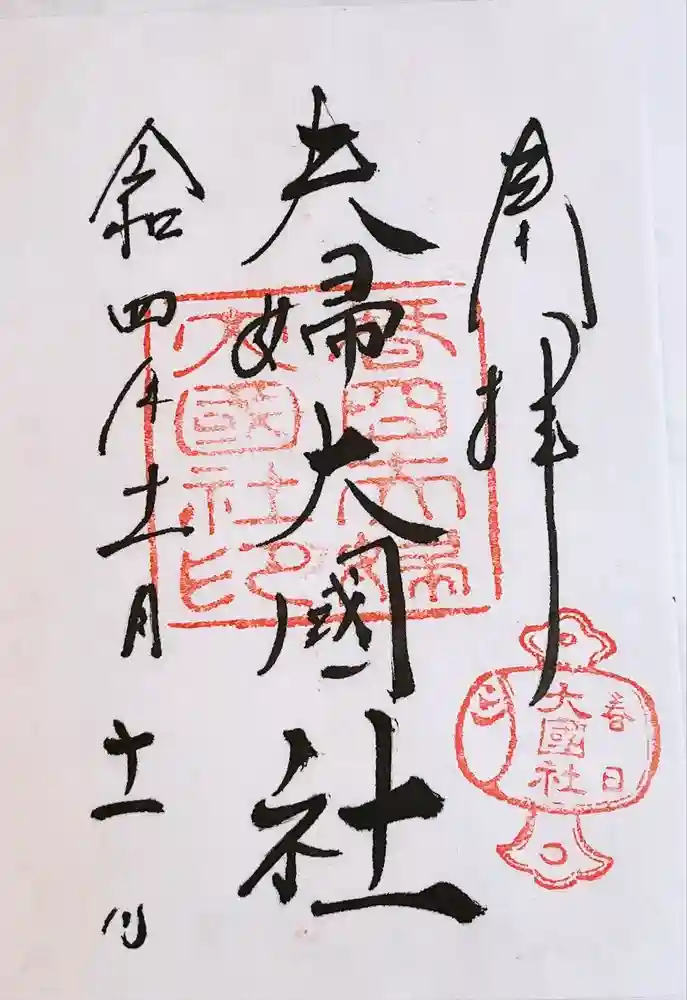 奉拝
春日
大國社
夫婦大國社
春日夫婦
大國社印
令和四年十一月十一日